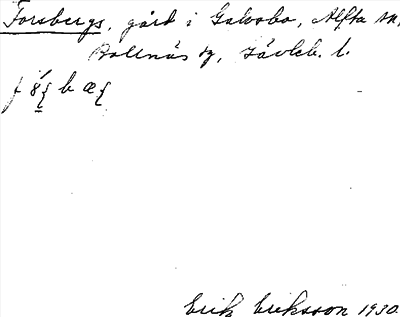 Forsbergs, gård i Galvsbo, Alfta sn,
Bollnäs tg, Gävleb. l.
Erik Eriksson 1930